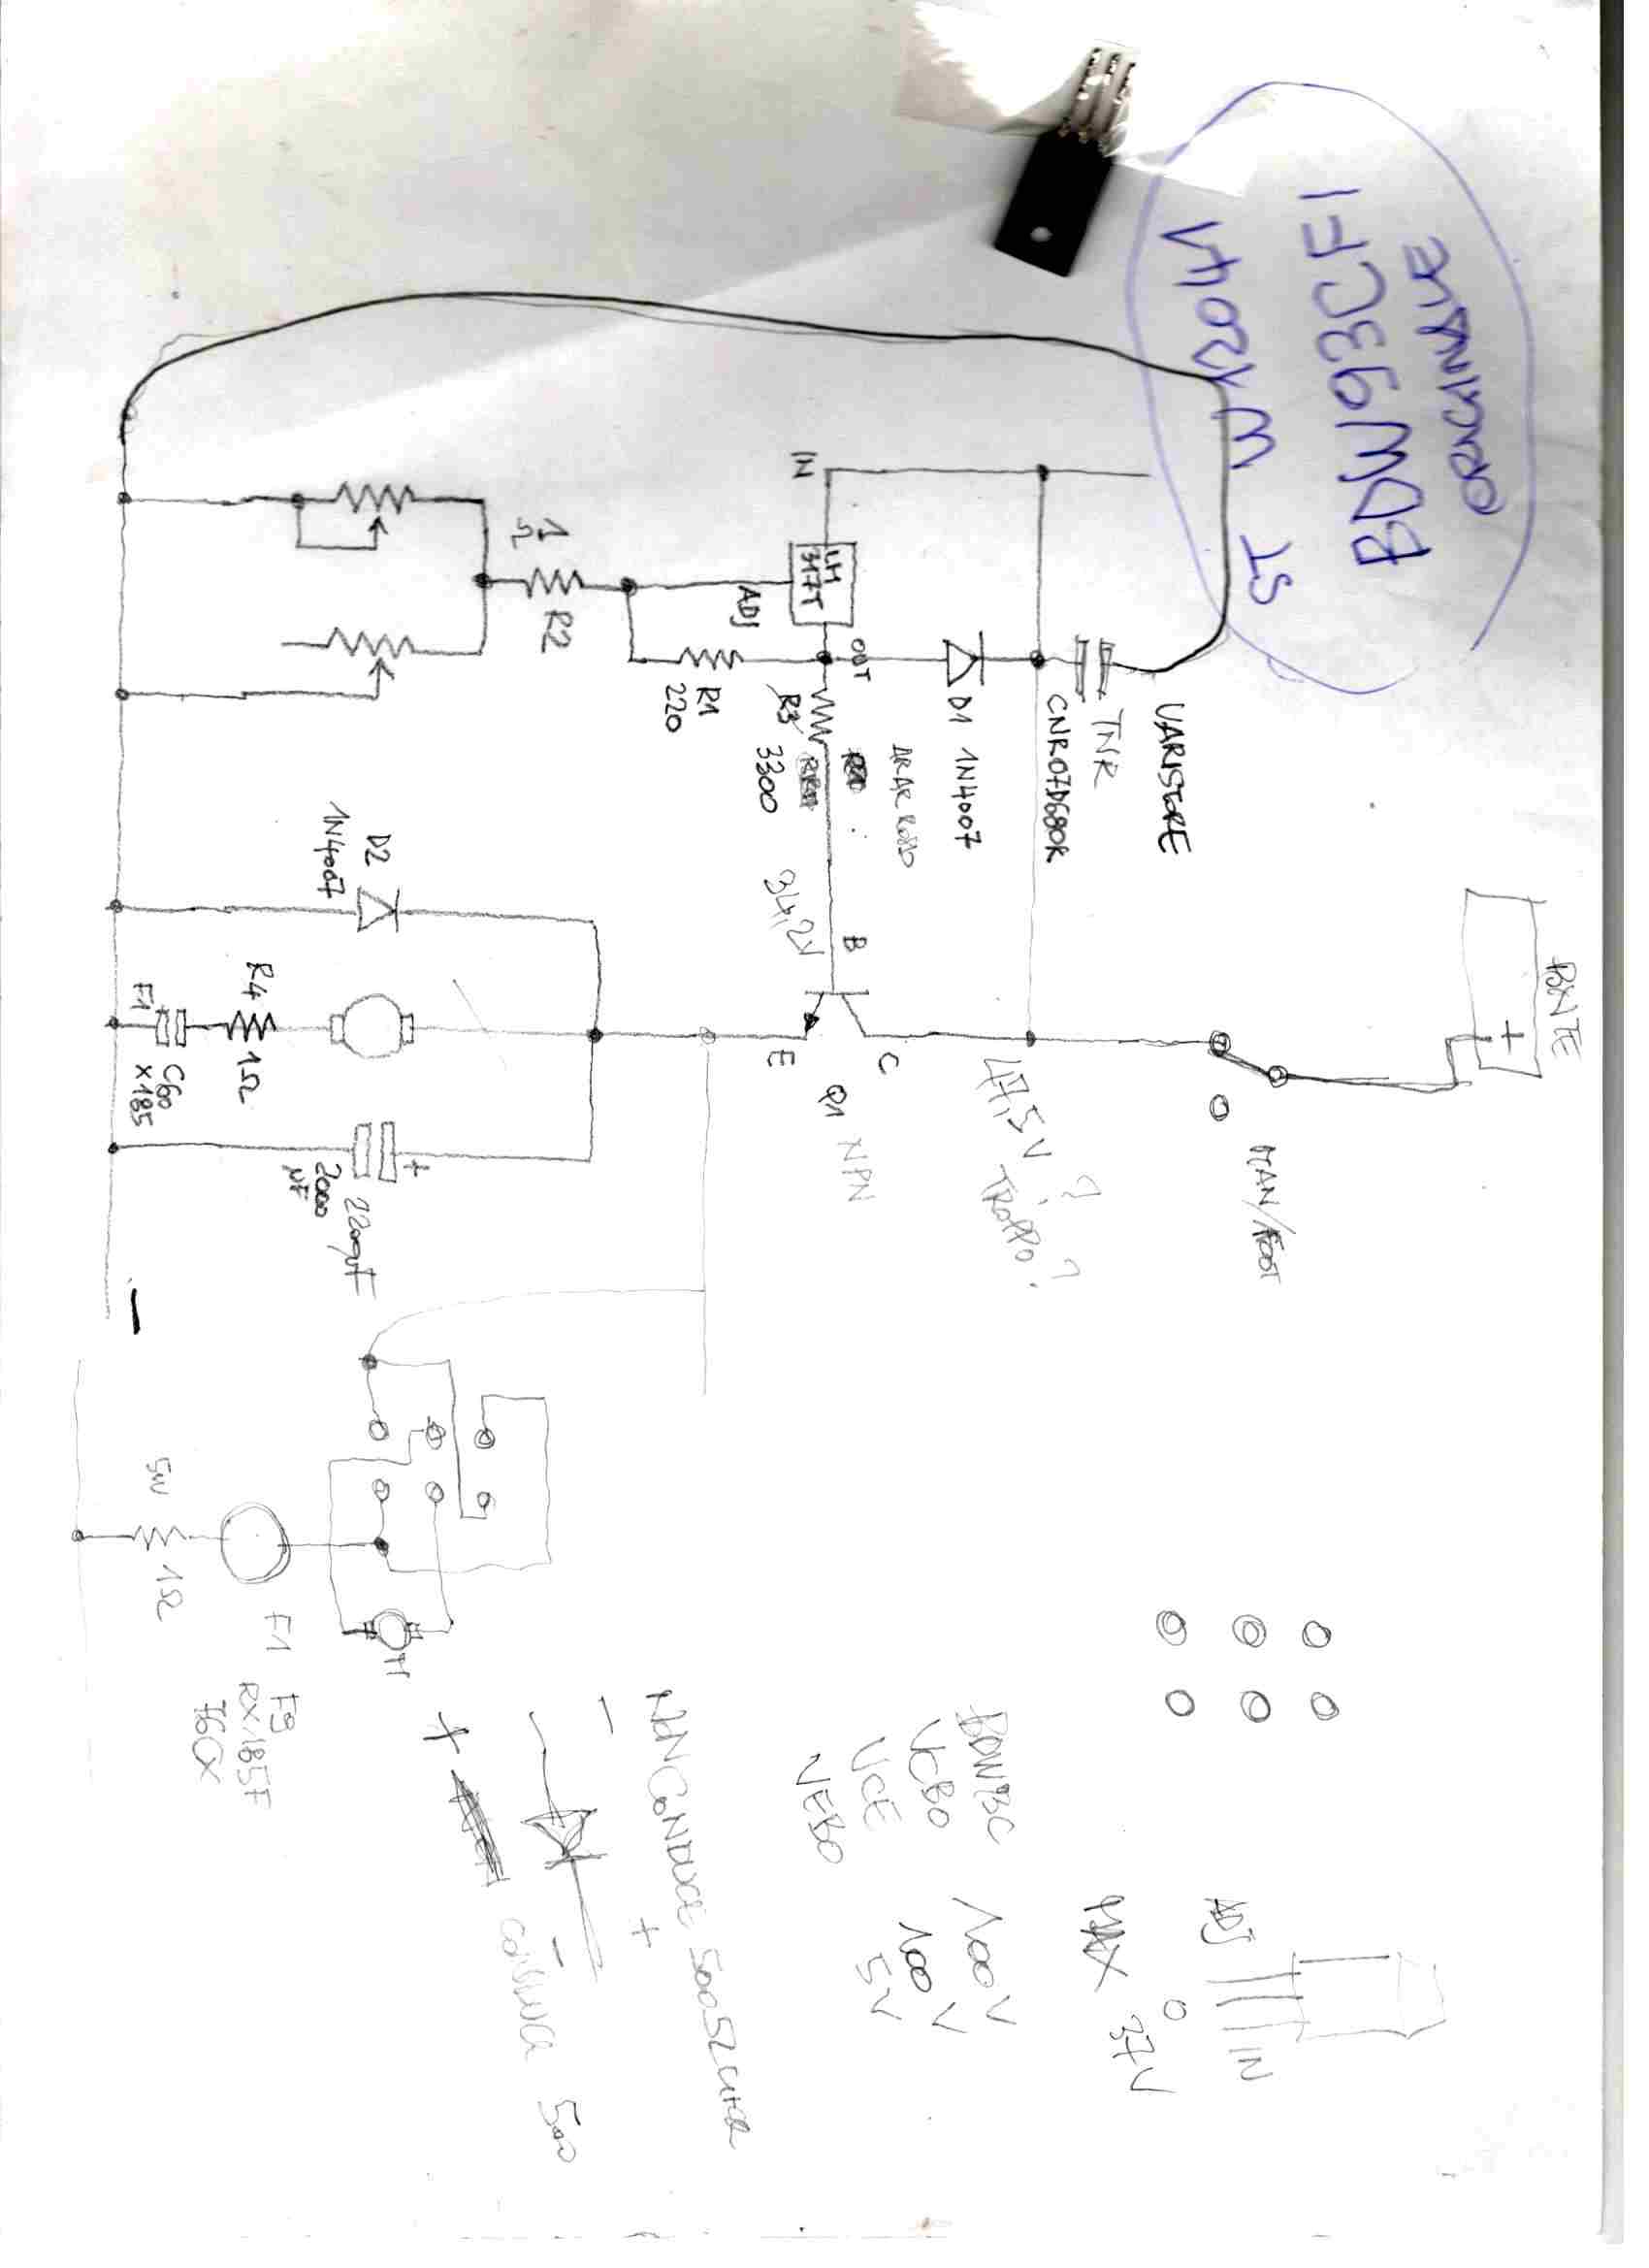 ORIGINALE
BDW93CFI
ST W8204A
IN
LM
317T
ADJ
OUT
R2
R1
220
R3
3300
D1 1N4007
CNR07D680K
TNR
VARISTORE
PONTE
+
34,2V
B
C
E
Q1 NPN
47,5V?
TROPPO?
MAN/FOOT
D2
1N4007
R4
1Ω
F1
C60
X185
+
2200µF
2000
µF
-
5W
1Ω
F1
F9
RX185F
M
BDW93C
VCBO 100V
VCE 100V
VEBO 5V
ADJ
IN
MAX
37V
NON CONDUCE
- +
+ -
500